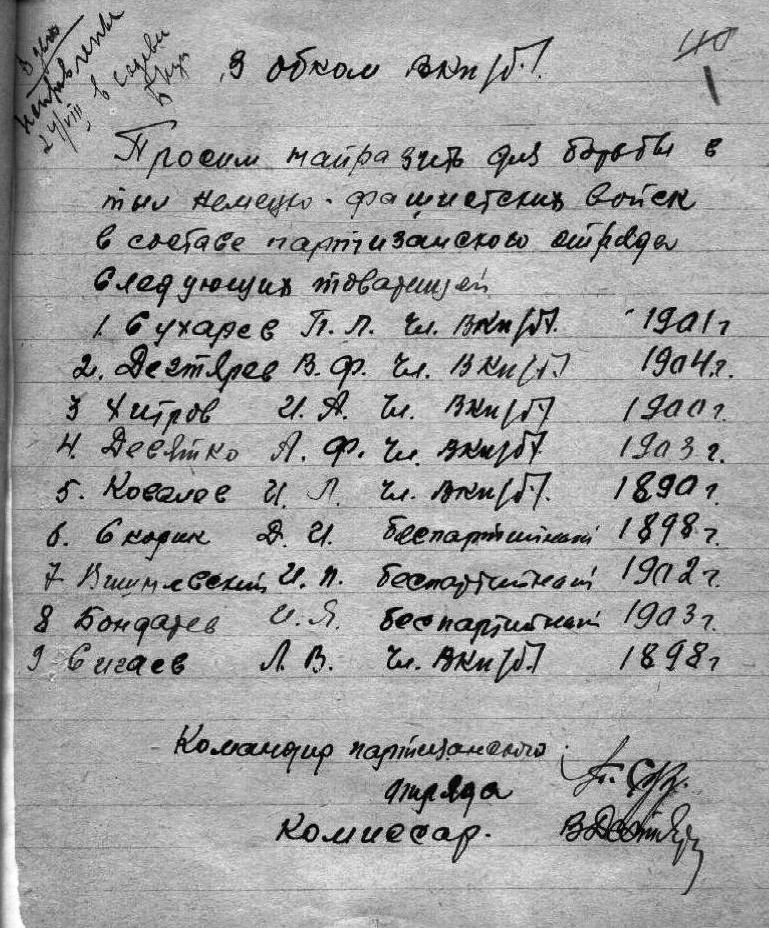 40
В обком ВКП/б/.
Просим направить для борьбы в
тыл немецко-фашистских войск
в составе партизанского отряда
следующих товарищей
1. Сухарев П. Л. чл. ВКП/б/. 1901 г
2. Дегтярев В. Ф. чл. ВКП/б/ 1904 г.
3 Хитров И. А. чл. ВКП/б/ 1900 г.
4. Десятко А. Ф. чл. ВКП/б/ 1903 г.
5. Ковалев И. Л. чл. ВКП/б/. 1890 г.
6. Скорик Д. И. беспартийный 1898 г.
7 И. П. беспартийный 1902 г.
8 Бондарев И. Я. беспартийный 1903 г.
9 Сигаев Л. В. чл. ВКП/б/ 1898 г
Командир партизанского
отряда
Комиссар.